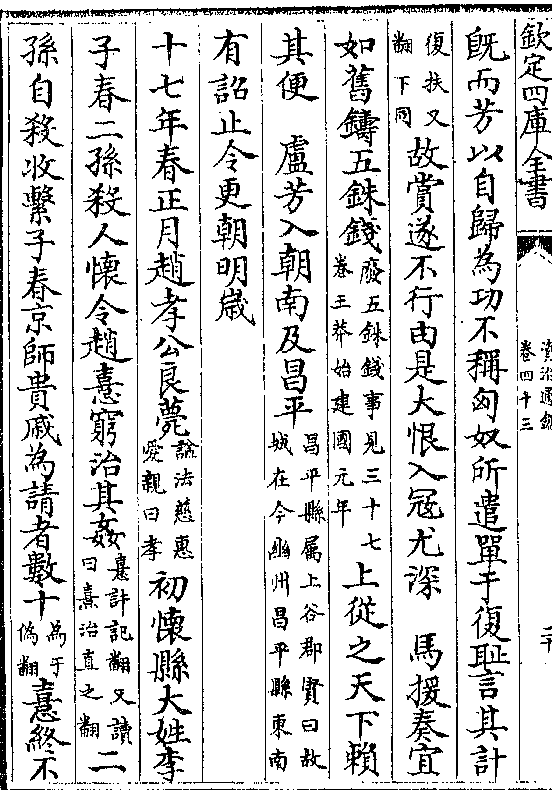 欽定四庫全書
資治通鑑
卷四十三
既而芳以自歸為功不稱匈奴所遣單于復耻言其計
復扶又翻下同故賞遂不行由是大恨入冦尤深　馬援奏宜
如舊鑄五銖錢廢五銖錢事見三十七卷王莽始建國元年上從之天下賴
其便　盧芳入朝南及昌平昌平縣屬上谷郡賢曰故城在今幽州昌平縣東南
有詔止令更朝明歲
十七年春正月趙孝公良薨諡法慈惠愛親曰孝初懷縣大姓李
子春二孫殺人懷令趙憙窮治其姦憙許記翻又讀曰熹治直之翻二
孫自殺收繫子春京師貴戚為請者數十為于偽翻憙終不